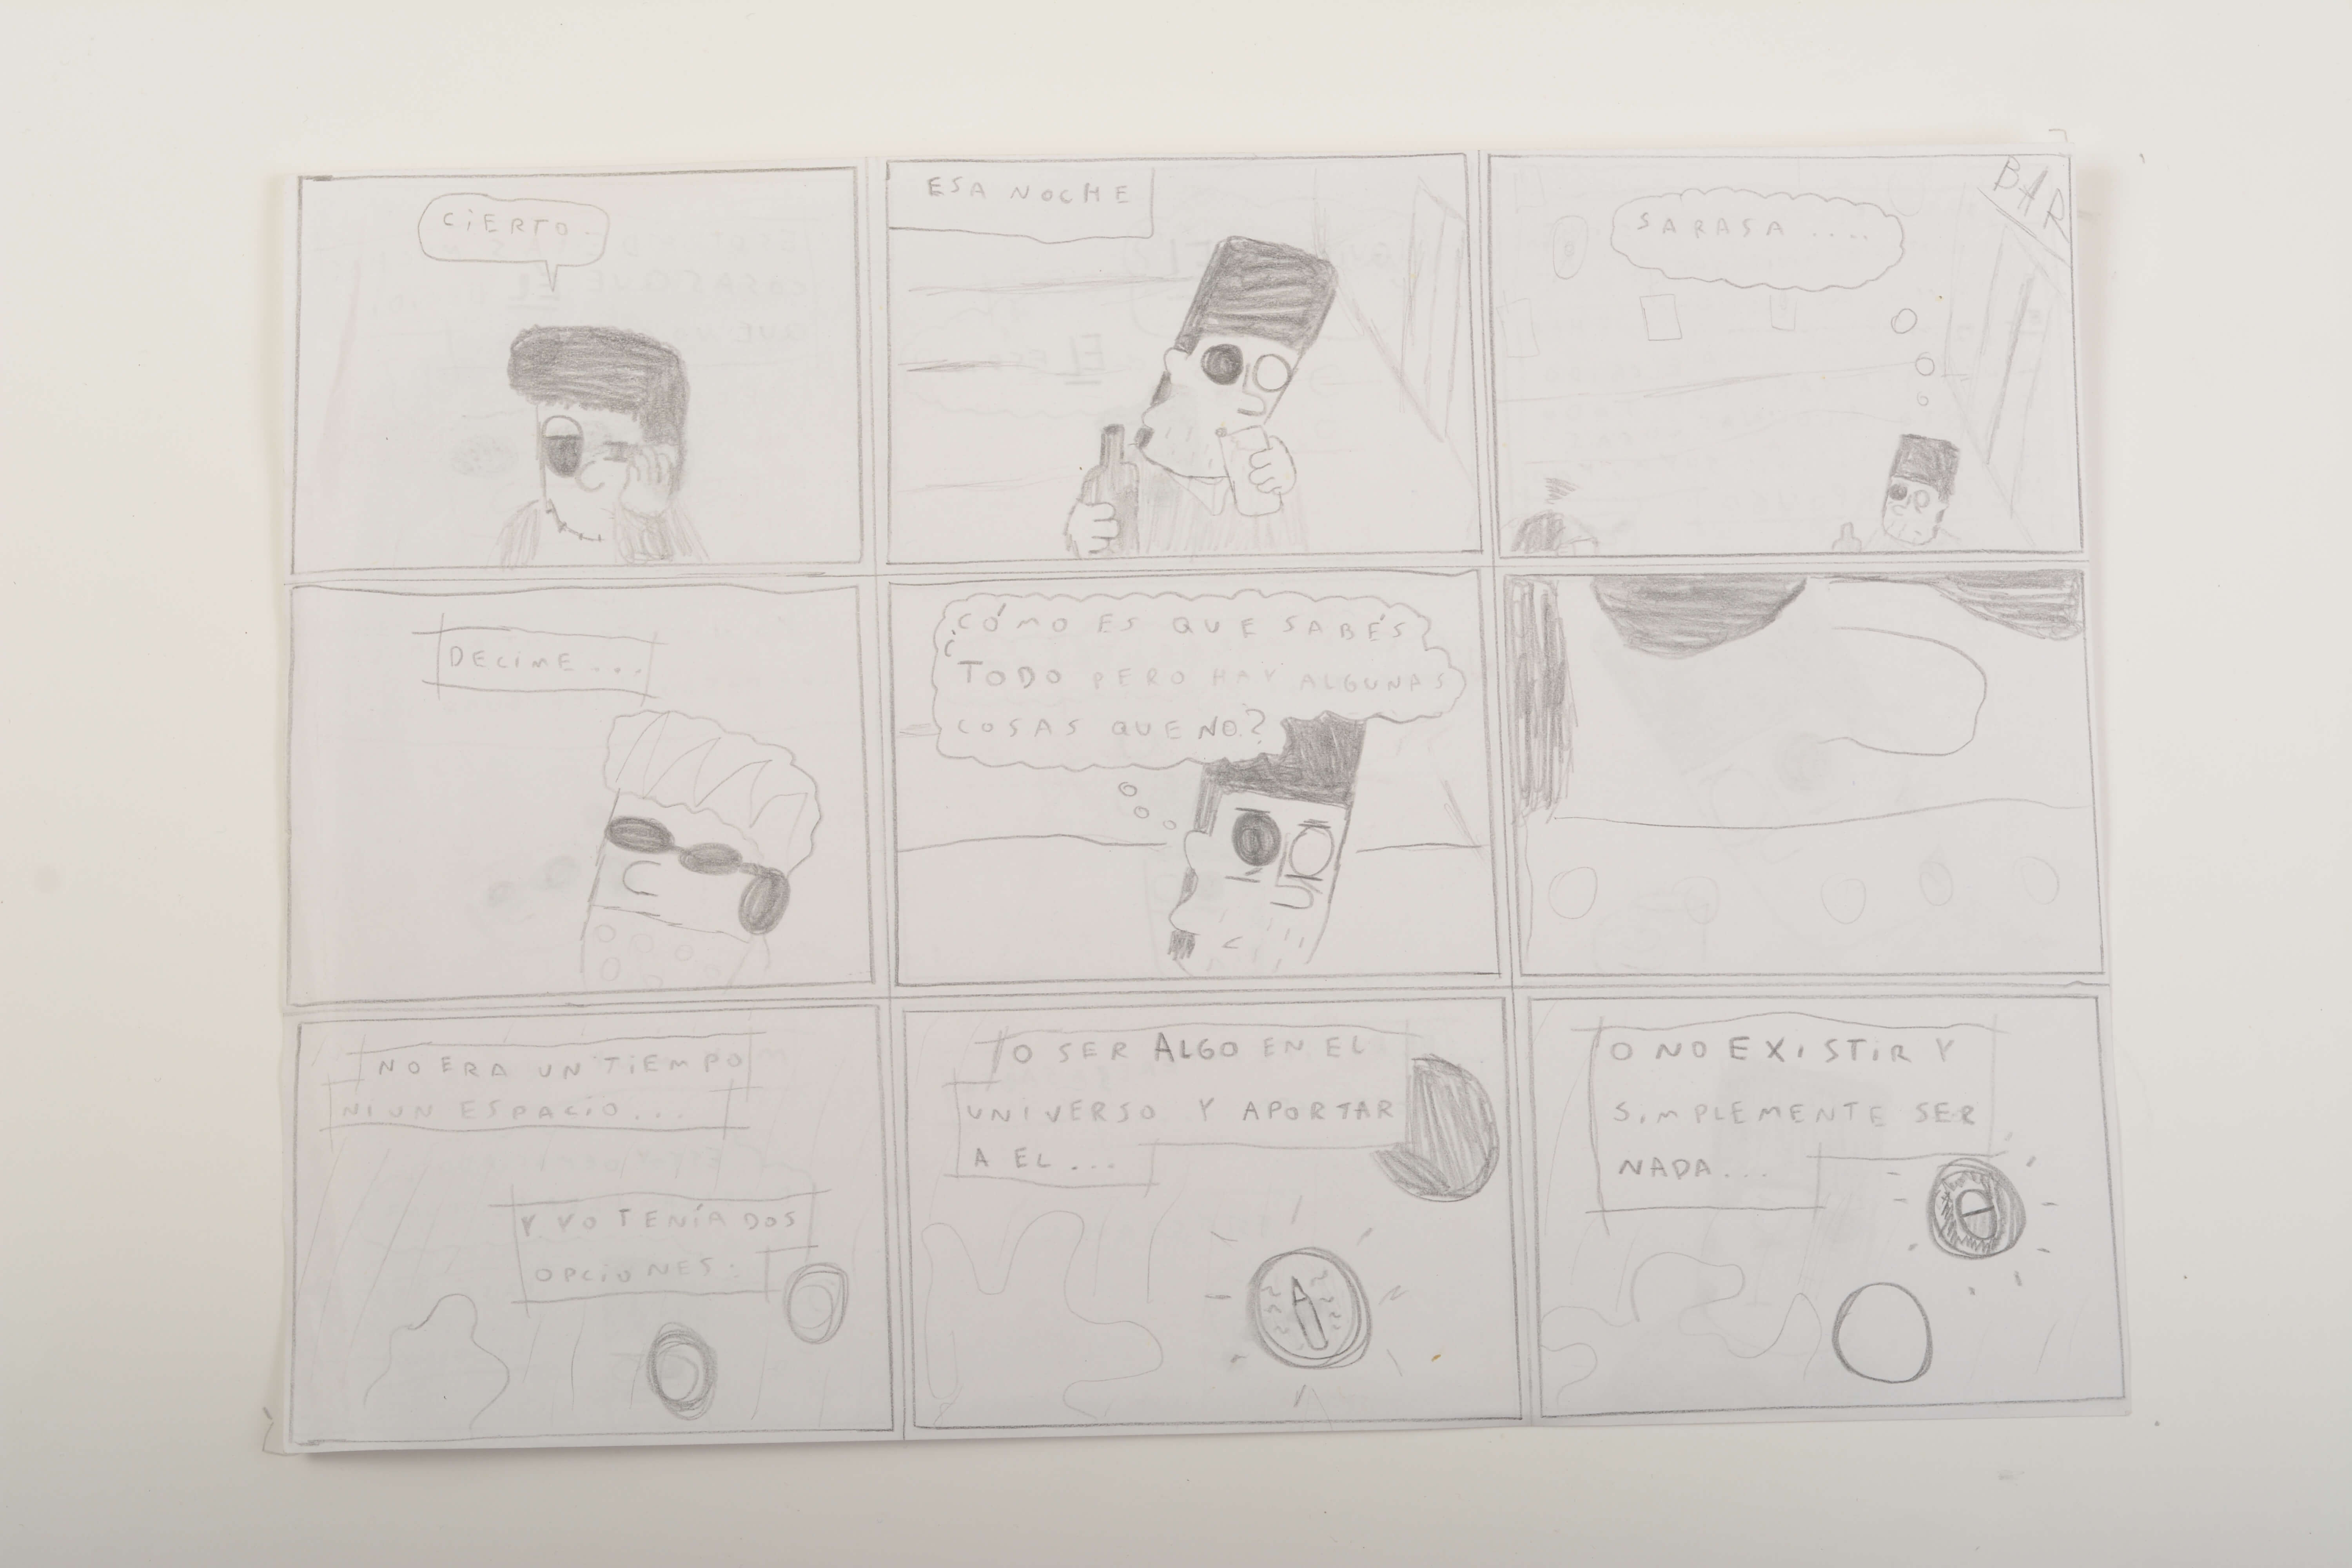 CIERTO.
ESA NOCHE
SARASA ....
BAR
DECIME...
¿CÓMO ES QUE SABÉS
TODO PERO HAY ALGUNAS
COSAS QUE NO?
NO ERA UN TIEMPO
NI UN ESPACIO...
Y YO TENÍA DOS
OPCIONES:
O SER ALGO EN EL
UNIVERSO Y APORTAR
A EL...
O NO EXISTIR Y
SIMPLEMENTE SER
NADA...